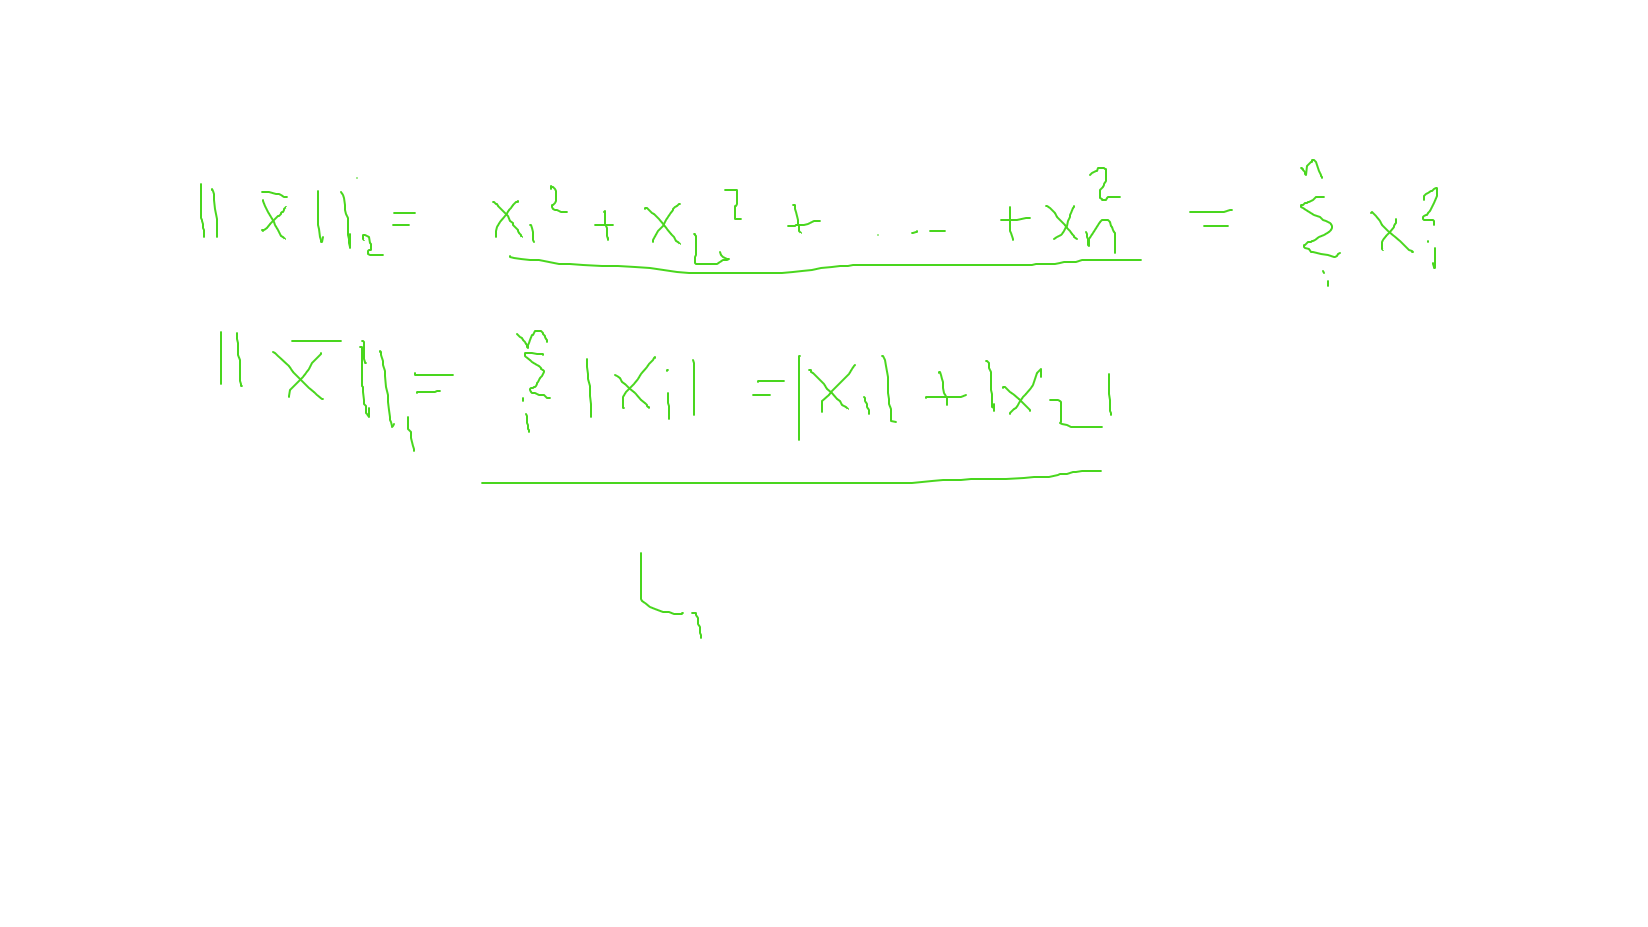 ‖x̄‖₂ = x₁² + x₂² + ... + xₙ² = Σᵢⁿ xᵢ²
‖x̄‖₁ = Σᵢⁿ |xᵢ| = |x₁| + |x₂|
L₁